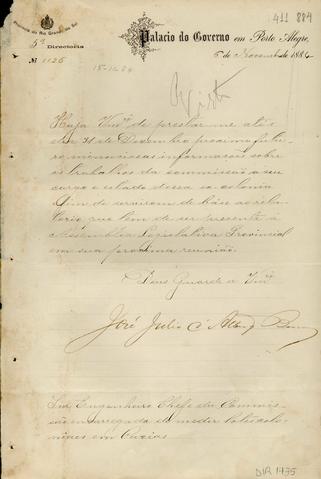 411 884
Provincia do Rio Grande do Sul
5ª Directoria
Nº 1126
Palacio do Governo em Porto Alegre,
5 de Novembro de 1884
Haja Vmcê de prestar-me até o
dia 31 de Dezembro proximo futu-
ro, minuciosas informações sobre
os trabalhos da commissão a seu
cargo e estado dessa ex-colonia
afim de servirem de base ao rela-
torio que tem de ser presente á
Assembléa Legislativa Provincial
em sua proxima reunião.
Deus Guarde a Vmcê
José Julio d'Alb. Barros
Snr. Engenheiro Chefe da Commis-
são encarregada de medir lotes colo-
niaes em Caxias
DIR 1475